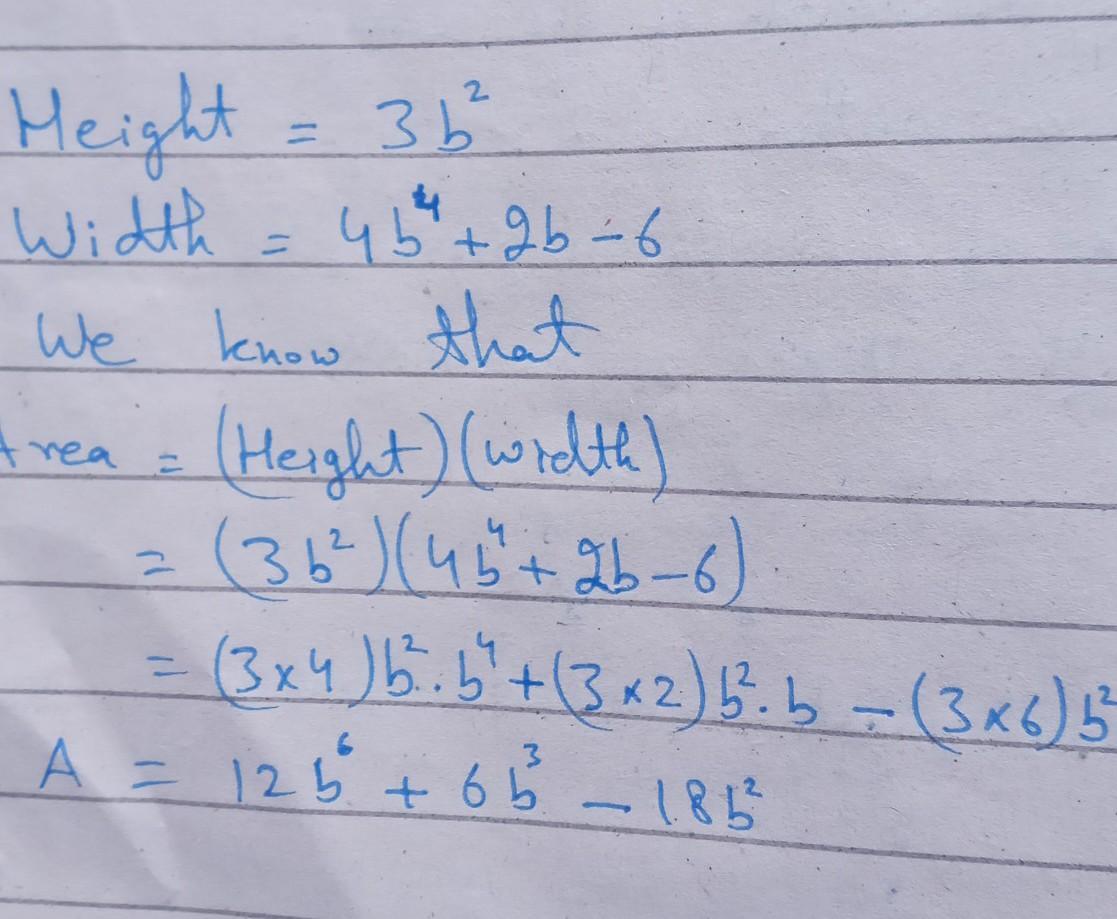 Height = 3b²
Width = 4b⁴ + 2b - 6
We know that
Area = (Height)(width)
= (3b²)(4b⁴ + 2b - 6)
= (3×4)b².b⁴ + (3×2)b².b - (3×6)b²
A = 12b⁶ + 6b³ - 18b²